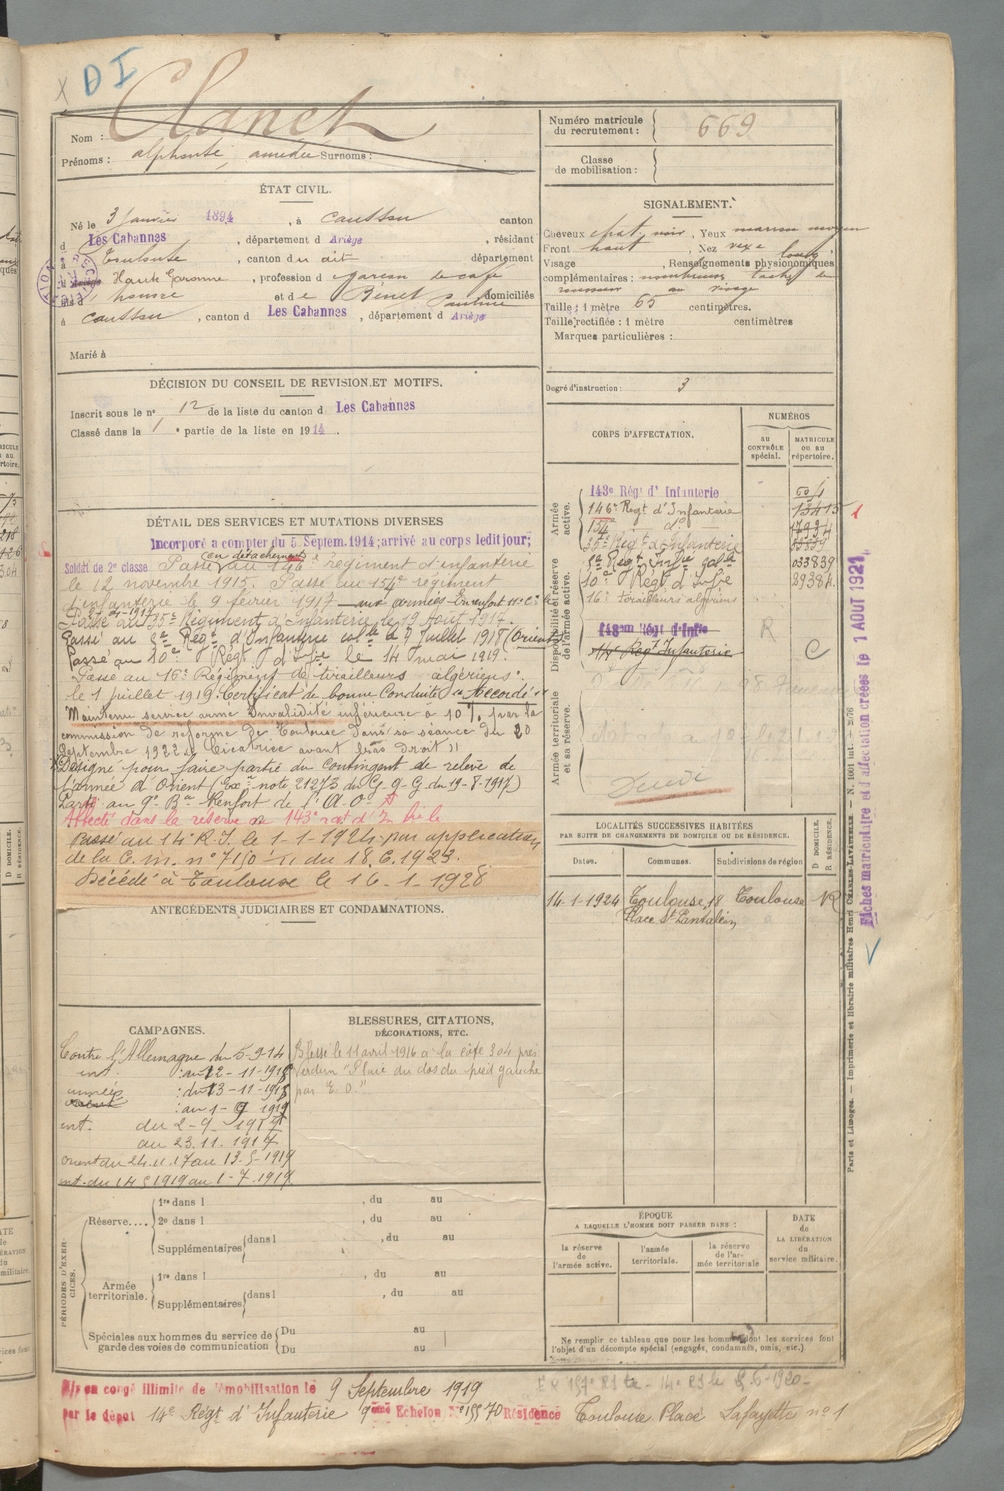 X D I
Clanet
Nom :
Prénoms : alphonse, amédée Surnoms :
Numéro matricule du recrutement : 669
Classe de mobilisation :
ÉTAT CIVIL.
Né le 3 Janvier 1894, à Caussou canton
d Les Cabannes, département d Ariège, résidant
à Toulouse, canton du dit département
d Haute Garonne, profession d garçon de café
fils d et de Bénet Pauline domiciliés
à Caussou, canton d Les Cabannes, département d Ariège
Marié à
SIGNALEMENT.
Cheveux chat. noir, Yeux marron moyen
Front haut, Nez
Visage Renseignements physionomiques
complémentaires : nombreuses taches de
au visage
Taille : 1 mètre 65 centimètres.
Taille rectifiée : 1 mètre centimètres
Marques particulières :
Degré d'instruction : 3
DÉCISION DU CONSEIL DE REVISION ET MOTIFS.
Inscrit sous le n° 12 de la liste du canton d Les Cabannes
Classé dans la 1 e partie de la liste en 1914.
DÉTAIL DES SERVICES ET MUTATIONS DIVERSES
Incorporé à compter du 5 Septem. 1914; arrivé au corps ledit jour;
(en détachement)
Soldat de 2e classe Passé au 146e régiment d'infanterie
le 12 novembre 1915. Passé au 154e régiment
d'infanterie le 9 février 1917
Passé au 35e Régiment d'Infanterie le 19 Août 1917.
Passé au 5e Régt d'Infanterie colle le 9 Juillet 1918 (Orient)
Passé au 10e Régt d'Infie le 14 mai 1919.
Passé au 16e Régiment de tirailleurs algériens
le 1 Juillet 1919. Certificat de bonne Conduite "Accordé"
Maintenu service armé Invalidité inférieure à 10% par la
commission de réforme de Toulouse dans sa séance du 20
Septembre 1922 " Cicatrice avant bras droit "
Désigné pour faire partie du Contingent de relève de
l'armée d'Orient (Exe: note 21273 du G. Q. G. du 19-8-1917)
Parti au 9e Bon Renfort de l'A. O.
Affecté dans la réserve au 143e rat d'In bi le
Passé au 14e R.I. le 1-1-1924 par application
de la C. m. n° 7150 du 18.6.1923.
Décédé à Toulouse le 16-1-1928
ANTÉCÉDENTS JUDICIAIRES ET CONDAMNATIONS.
CORPS D'AFFECTATION.
NUMÉROS
AU CONTRÔLE spécial.
MATRICULE OU AU répertoire.
Armée active.
143e Régt d'Infanterie
146e Régt d'Infanterie 13415
154 do
35e Régt d'Infanterie
5e Régt Infie colle 033839
10e Régt d'Infie
16e tirailleurs algériens
Disponibilité et réserve de l'armée active.
143me Régt d'Infie R
Régt Infanterie C
Armée territoriale et sa réserve.
LOCALITÉS SUCCESSIVES HABITÉES
PAR SUITE DE CHANGEMENTS DE DOMICILE OU DE RÉSIDENCE.
Dates. Communes. Subdivisions de région D DOMICILE. R RÉSIDENCE.
14-1-1924 Toulouse, 18 Toulouse R
Place St Pantaléon
Fiches matriculaire et d'affectation créées le 1 AOUT 1921
Paris et Limoges. — Imprimerie et librairie militaires Henri CHARLES-LAVAUZELLE.
CAMPAGNES.
Contre l'Allemagne du 5-9-14
int. : au 12-11-1915
armées : du 13-11-1915
: au 1-9 1917
int. du 2-9 1917
au 23.11.1917
orient du 24.11.17 au 13-5-1919
int. du 14 5 1919 au 1-7-1919
BLESSURES, CITATIONS, DÉCORATIONS, ETC.
Blessé le 11 avril 1916 à la côte 304 près
Verdun "Plaie du dos du pied gauche
par E. O."
PÉRIODES D'EXERCICES.
Réserve.... 1re dans l , du au
2e dans l , du au
Supplémentaires dans l , du au
Armée territoriale. 1re dans l , du au
Supplémentaires dans l , du au
Spéciales aux hommes du service de garde des voies de communication Du au
Du au
ÉPOQUE
A LAQUELLE L'HOMME DOIT PASSER DANS :
la réserve de l'armée active.
l'armée territoriale.
la réserve de l'armée territoriale
DATE de LA LIBÉRATION du service militaire.
Ne remplir ce tableau que pour les hommes dont les services font
l'objet d'un décompte spécial (engagés, condamnés, omis, etc.)
Mis en congé illimité de démobilisation le 9 Septembre 1919
par le dépôt 14e Régt d'Infanterie 9eme Echelon N° 15570 Résidence Toulouse Place Lafayette n° 1